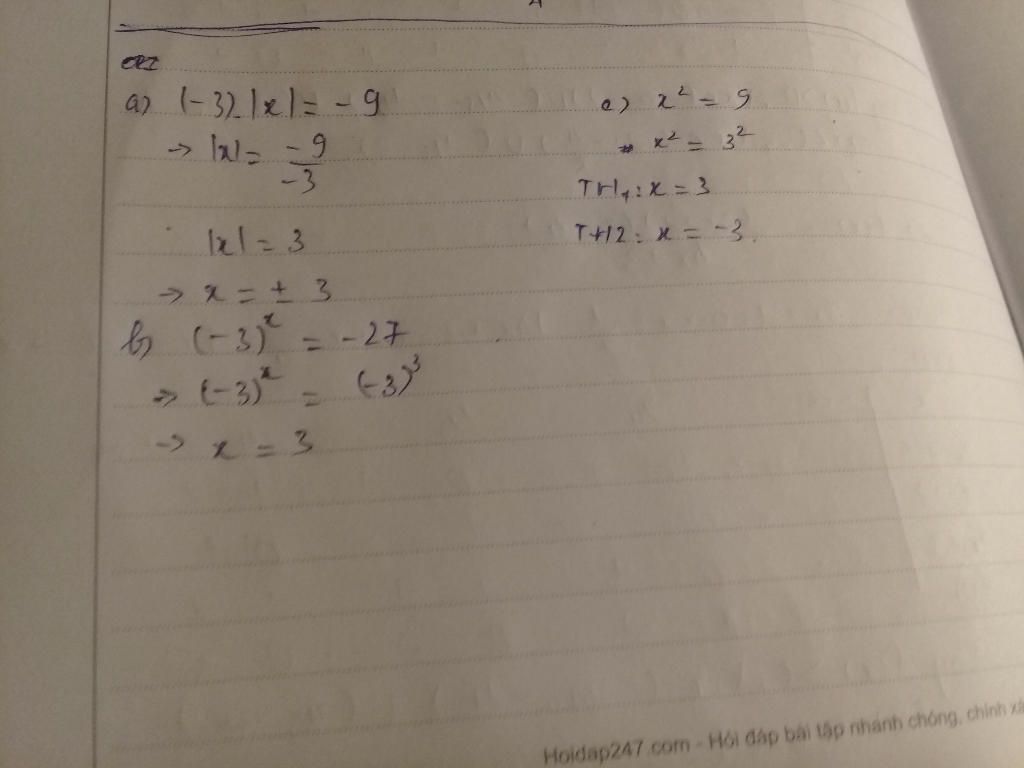 a) (-3).|x| = -9
→ |x| = \frac{-9}{-3}
|x| = 3
→ x = ± 3
b) (-3)^x = -27
→ (-3)^x = (-3)^3
→ x = 3
c) x² = 9
x² = 3²
TH1: x = 3
TH2: x = -3.
Hoidap247.com - Hỏi đáp bài tập nhanh chóng, chính xá